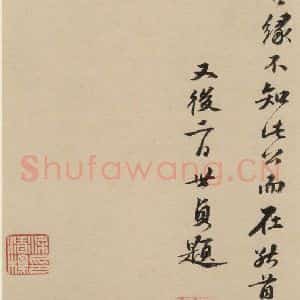 緣不知此公而在
又後二日世貞題
Shufawang.CN